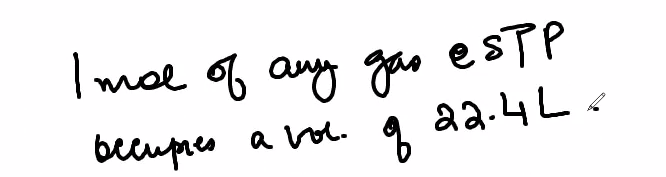 1 mole of any gas @ STP
occupies a vol. of 22.4L